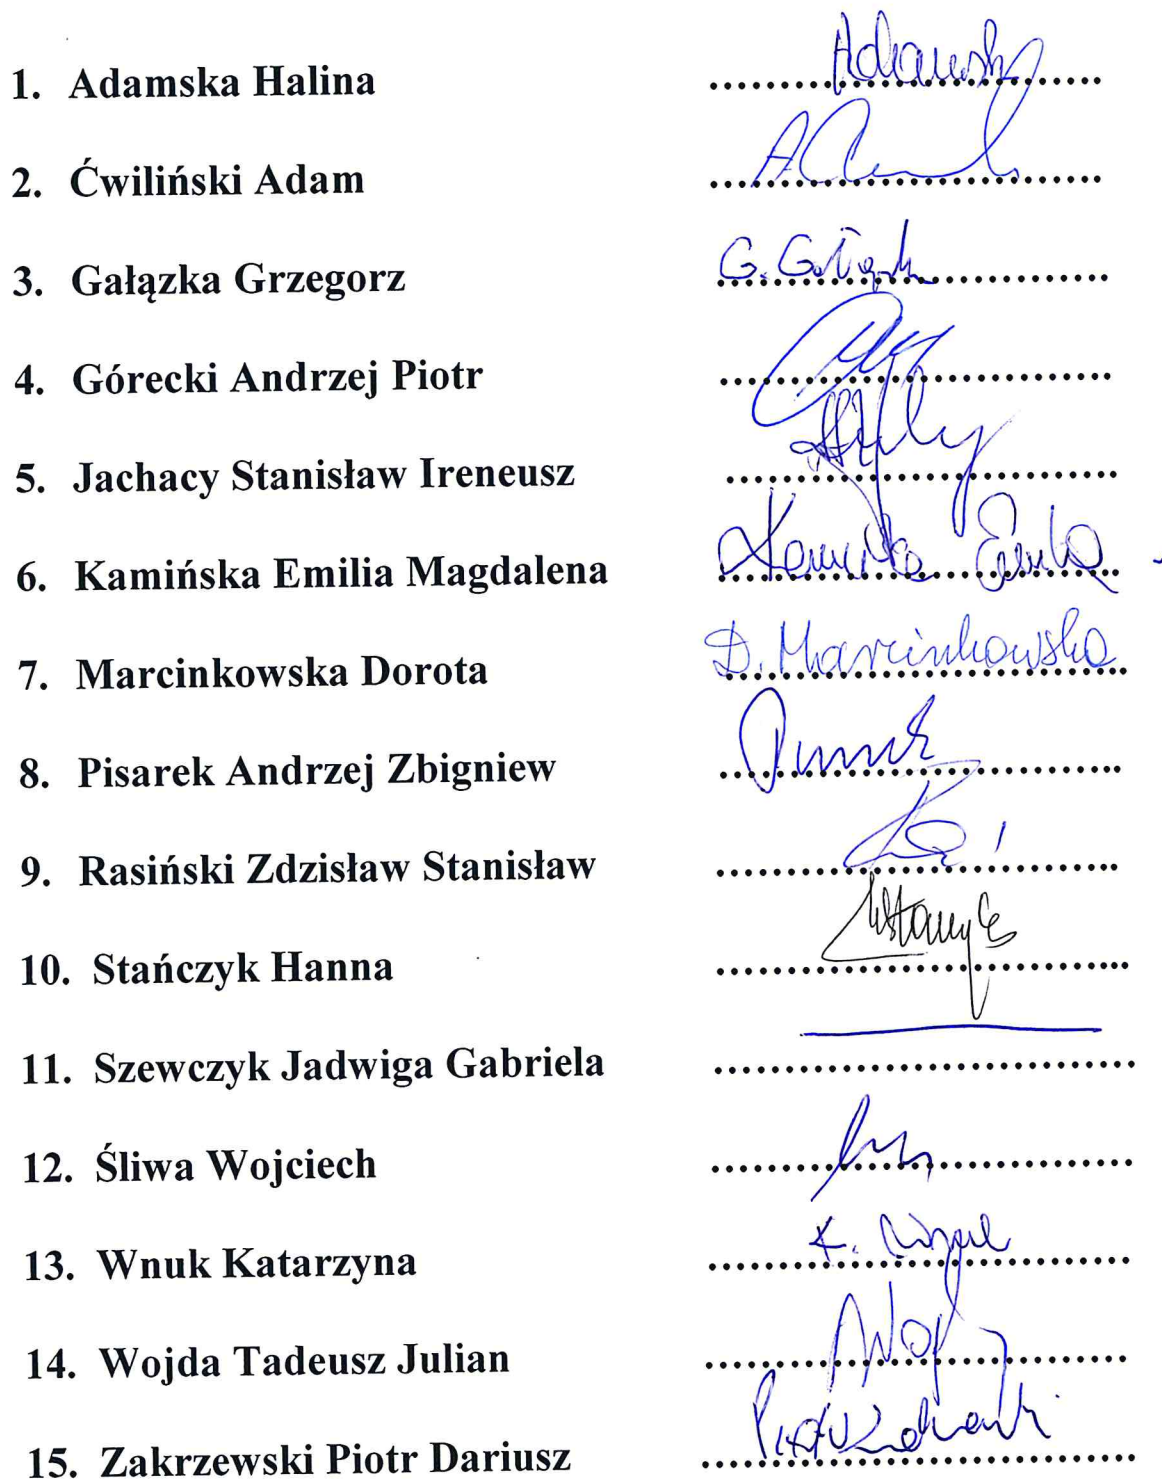 1. Adamska Halina ........ Adamska
2. Ćwiliński Adam ........
3. Gałązka Grzegorz ........ G. Gałązka
4. Górecki Andrzej Piotr ........
5. Jachacy Stanisław Ireneusz ........
6. Kamińska Emilia Magdalena ........ Kamińska Emilia
7. Marcinkowska Dorota ........ D. Marcinkowska
8. Pisarek Andrzej Zbigniew ........
9. Rasiński Zdzisław Stanisław ........
10. Stańczyk Hanna ........
11. Szewczyk Jadwiga Gabriela ........
12. Śliwa Wojciech ........
13. Wnuk Katarzyna ........ K.
14. Wojda Tadeusz Julian ........
15. Zakrzewski Piotr Dariusz ........ Piotr Zakrzewski